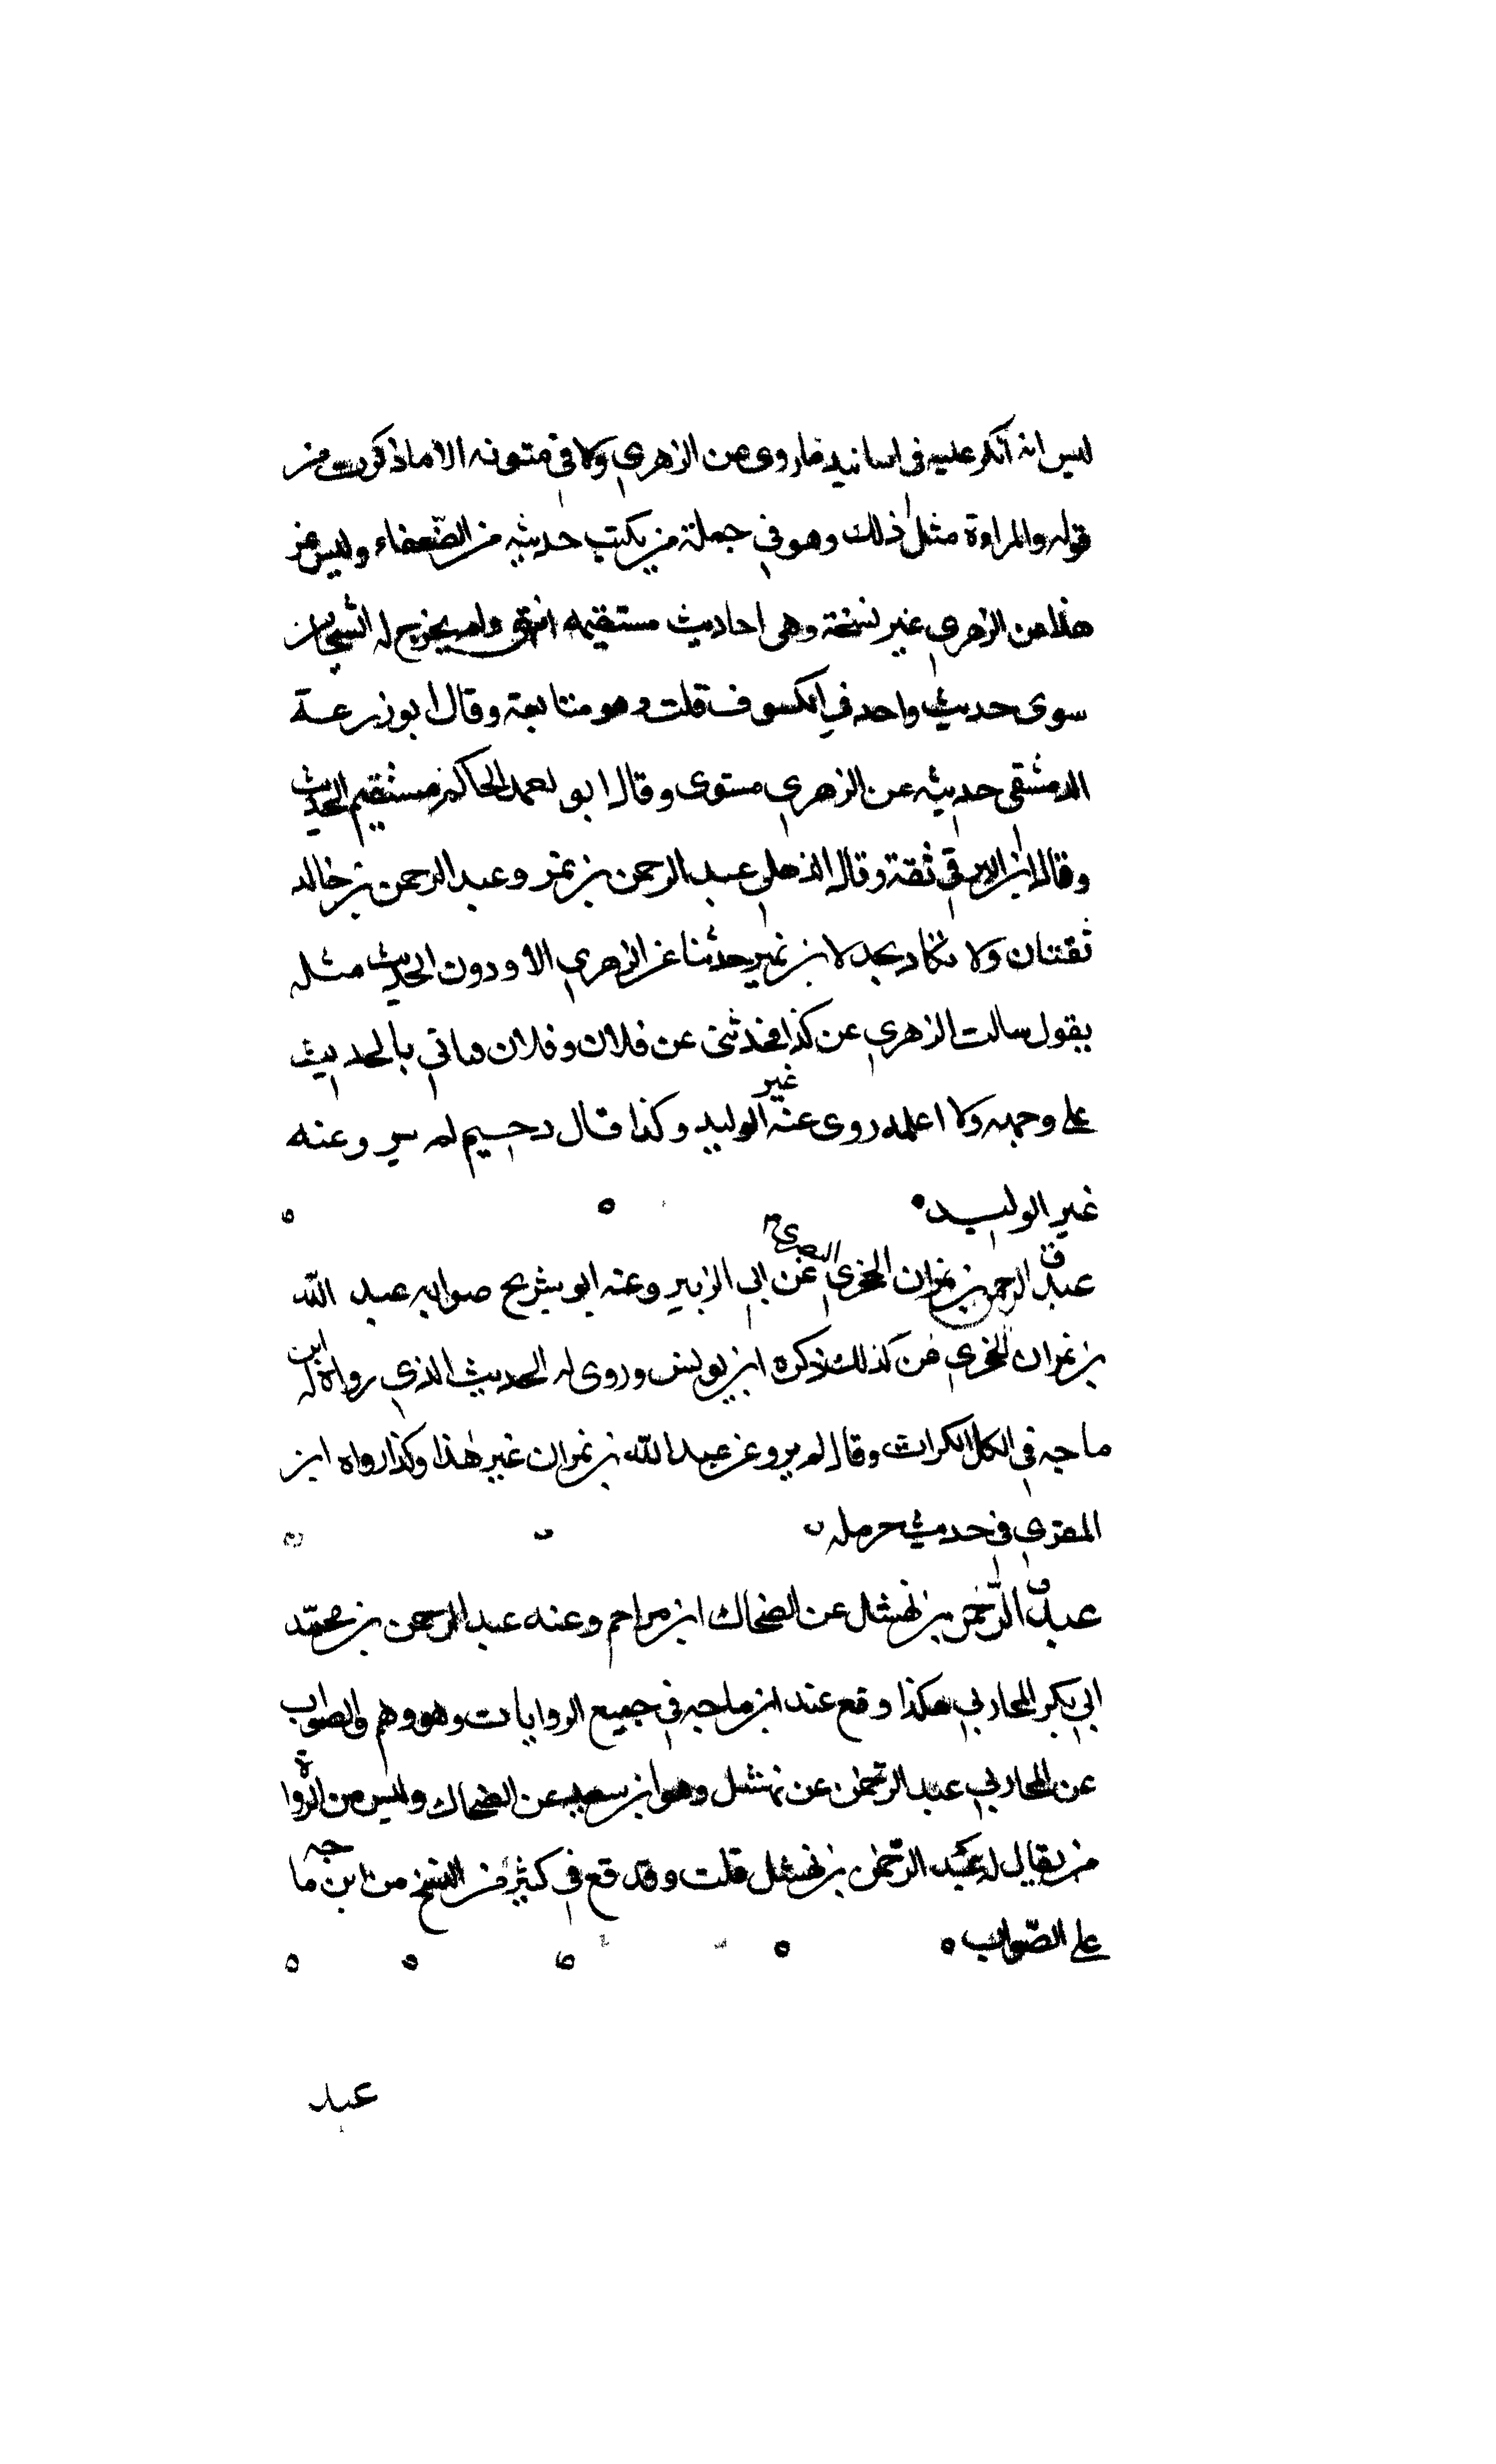 ليس انه انكر عليه في اسانيد ما روى عن الزهري ولا في متونه الا ما ذكرت من
قوله والمراءة مثل ذلك وهو في جملة من يكتب حديثه من الضّعفاء وليس عن
هذا عن الزهري غير نسخة وهي احاديث مستقيمة انتهى ولم يخرج له الشيخان
سوى حديث واحد في الكسوف قلت وهو متابعة وقال ابو زرعة
الدمشقي حديثه عن الزهري مستوى وقال ابو احمد الحاكم مستقيم الحديث
وقال ابن البرقي ثقة وقال الذهلي عبد الرحمن بن نمر وعبد الرحمن بن خالد
ثقتان ولا تكاد تجد لابن نمير حدثنا عن الزهري الا ودون الحديث مثله
يقول سالت الزهري عن كذا فحدثني عن فلان وفلان فياتي بالحديث
على وجهه ولا اعلمه روى عنه غير الوليد وكذا قال دحيم لم ير وعنه
غير الوليد
ق
عبد الرحمن بن نمران الحجري المصري عن ابي الزبير وعنه ابو شريح صوابه عبد الله
بن نمران الحجري كذلك ذكره ابن يونس وروى له الحديث الذي رواه له ابن
ماجه في اكل الكراث وقال لم يرو عن عبد الله بن نمران غير هذا وكذا رواه ابن
المقري في حديث حرمله
ق
عبد الرّحمن بن نهشل عن الضحاك ابن مزاحم وعنه عبد الرحمن بن محمّد
ابي بكر المحاربي هكذا وقع عند ابن ماجه في جميع الروايات وهو وهم والصواب
عن المحاربي عبد الرحمن عن نهشل وهو ابن سعيد عن الضحاك وليس من الرواة
من يقال له عبد الرحمن بن نهشل قلت وقد قع في كثير من النسخ من ابن ماجه
على الصّواب
عبد